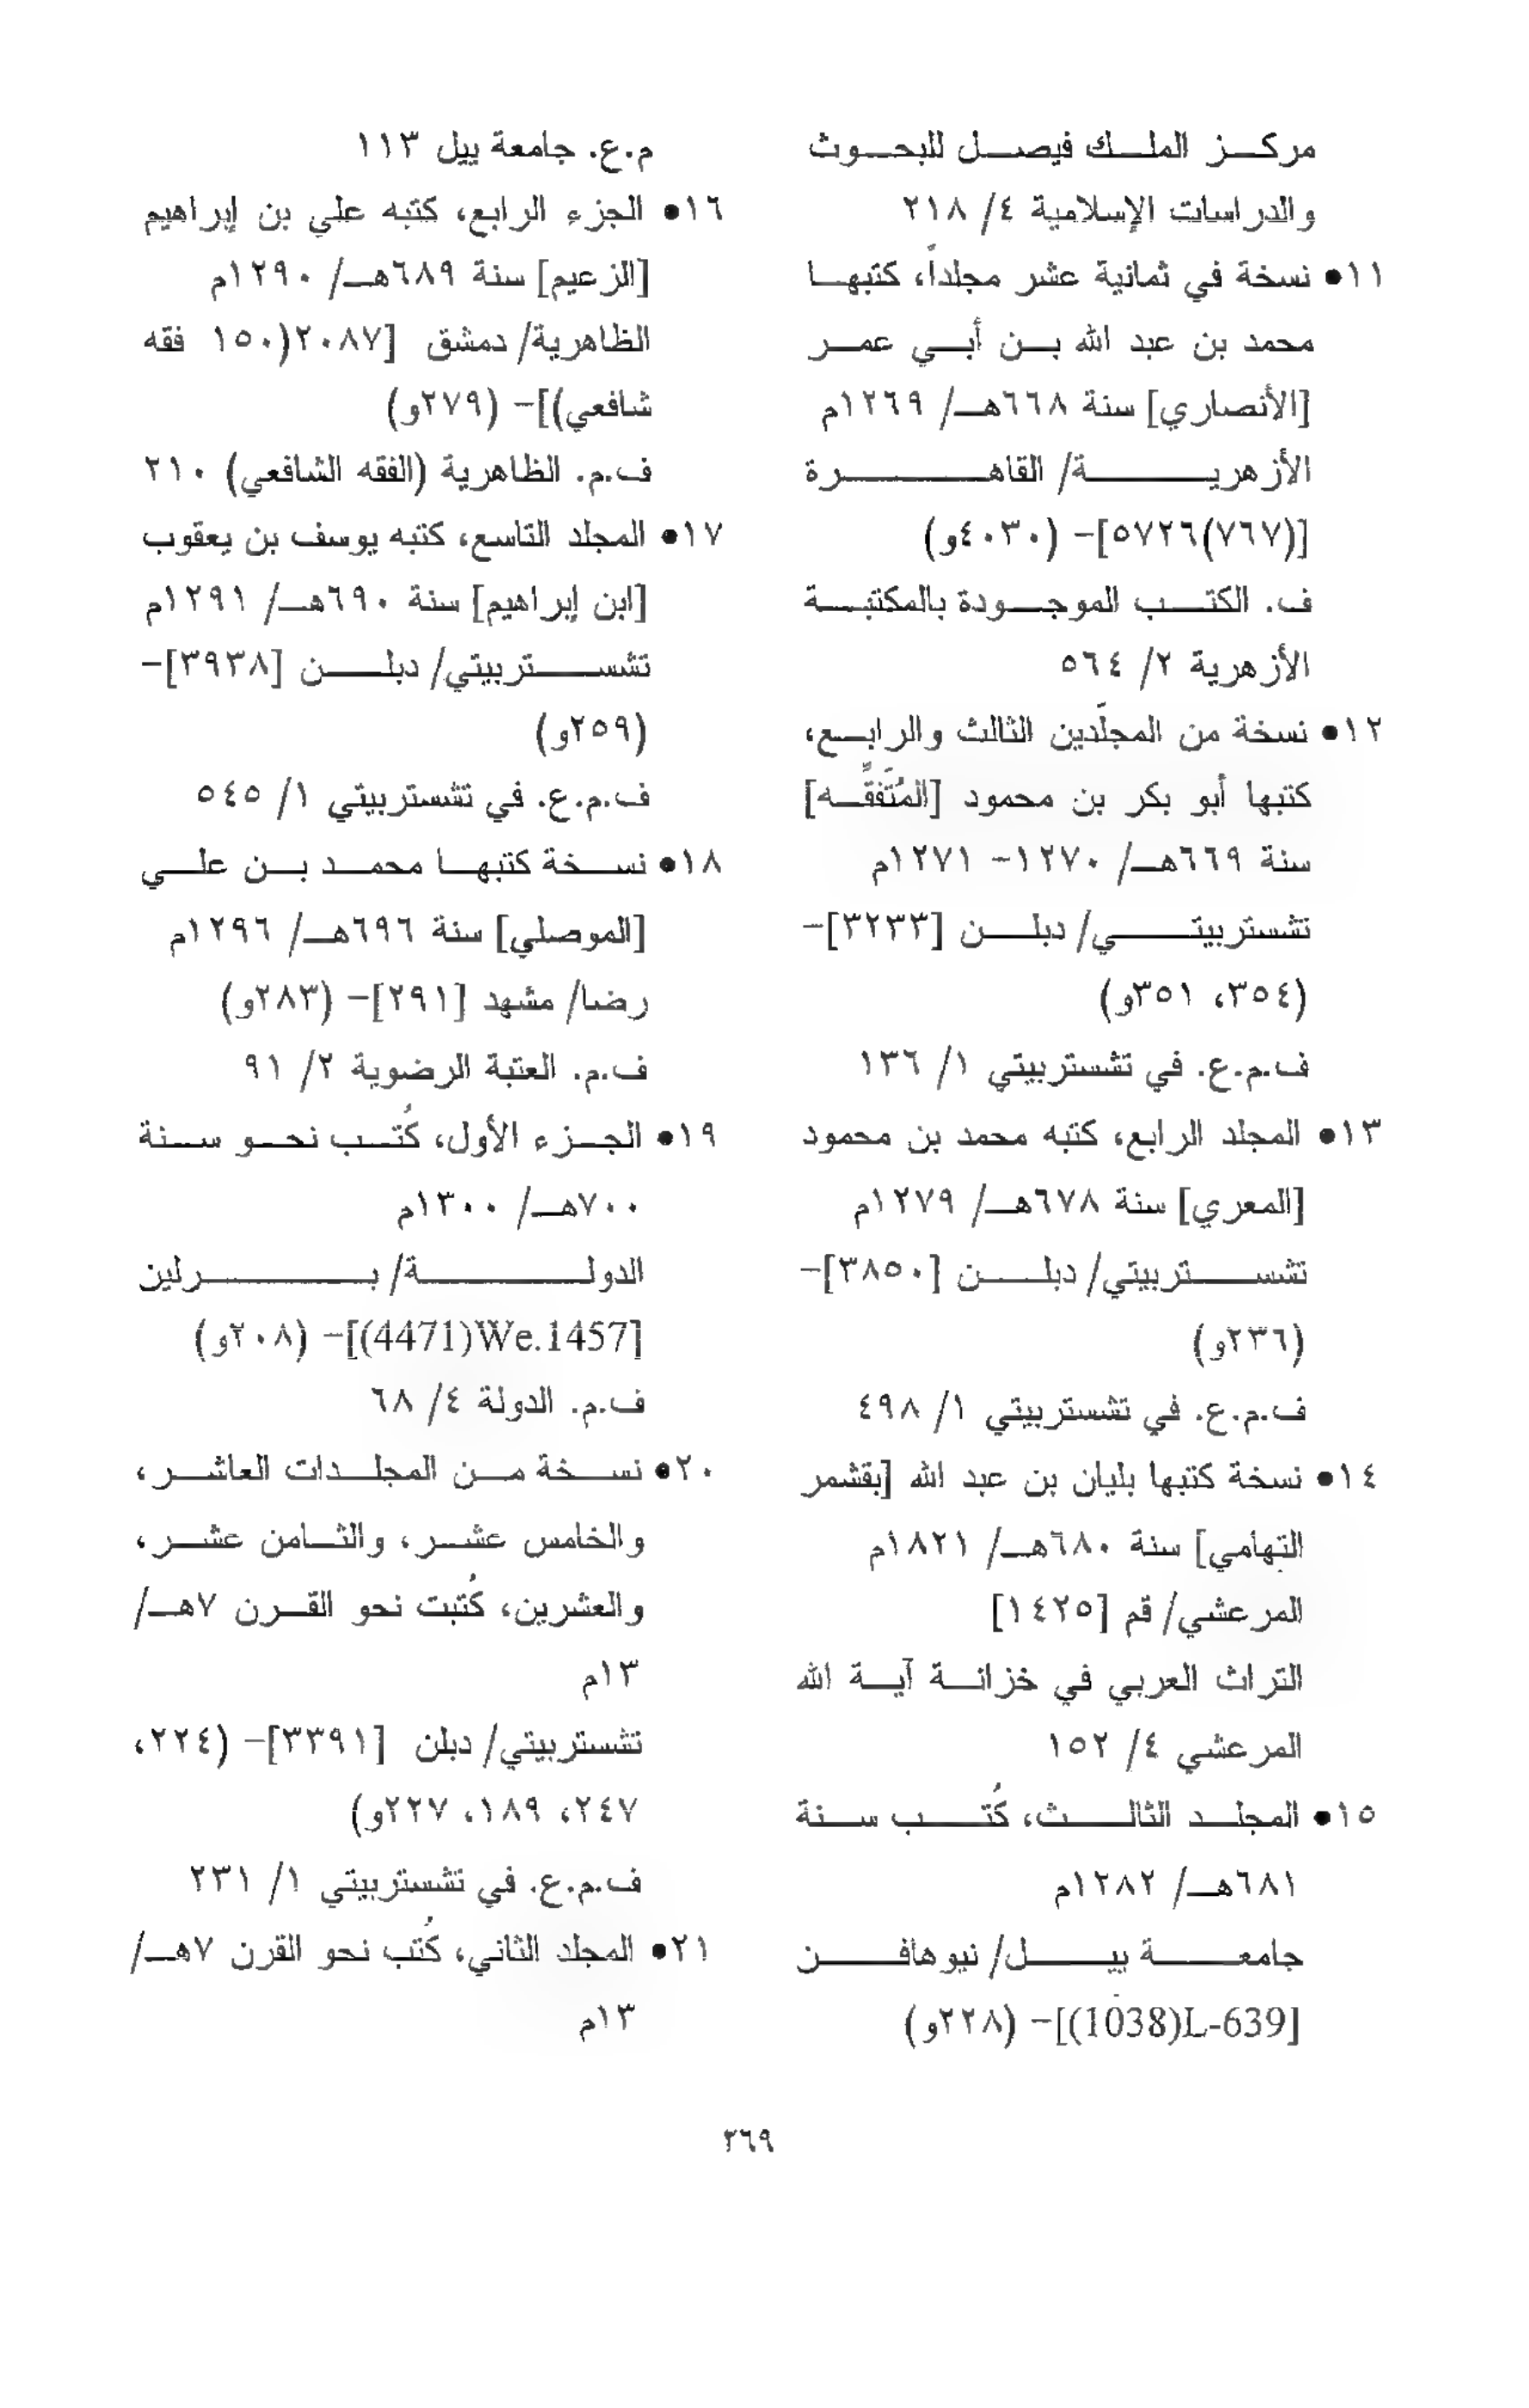 مركز الملك فيصل للبحوث
والدراسات الإسلامية ٤/ ٢١٨
١١• نسخة في ثمانية عشر مجلداً، كتبها
محمد بن عبد الله بن أبي عمر
[الأنصاري] سنة ٦٦٨هـ/ ١٢٦٩م
الأزهرية/ القاهرة
[(٧٦٧)٥٧٢٦]– (٤٠٣٠و)
ف. الكتب الموجودة بالمكتبة
الأزهرية ٢/ ٥٦٤
١٢• نسخة من المجلّدين الثالث والرابع،
كتبها أبو بكر بن محمود [المُتَفقِّه]
سنة ٦٦٩هـ/ ١٢٧٠– ١٢٧١م
تشستربيتي/ دبلن [٣٢٣٣]–
(٣٥٤، ٣٥١و)
ف.م.ع. في تشستربيتي ١/ ١٣٦
١٣• المجلد الرابع، كتبه محمد بن محمود
[المعري] سنة ٦٧٨هـ/ ١٢٧٩م
تشستربيتي/ دبلن [٣٨٥٠]–
(٢٣٦و)
ف.م.ع. في تشستربيتي ١/ ٤٩٨
١٤• نسخة كتبها بليان بن عبد الله [بقشمر
التهامي] سنة ٦٨٠هـ/ ١٨٢١م
المرعشي/ قم [١٤٢٥]
التراث العربي في خزانة آية الله
المرعشي ٤/ ١٥٢
١٥• المجلد الثالث، كُتب سنة
٦٨١هـ/ ١٢٨٢م
جامعة ييل/ نيوهافن
[L-639(1038)]– (٢٢٨و)
م.ع. جامعة ييل ١١٣
١٦• الجزء الرابع، كتبه علي بن إبراهيم
[الزعيم] سنة ٦٨٩هـ/ ١٢٩٠م
الظاهرية/ دمشق [٢٠٨٧(١٥٠ فقه
شافعي)]– (٢٧٩و)
ف.م. الظاهرية (الفقه الشافعي) ٢١٠
١٧• المجلد التاسع، كتبه يوسف بن يعقوب
[ابن إبراهيم] سنة ٦٩٠هـ/ ١٢٩١م
تشستربيتي/ دبلن [٣٩٣٨]–
(٢٥٩و)
ف.م.ع. في تشستربيتي ١/ ٥٤٥
١٨• نسخة كتبها محمد بن علي
[الموصلي] سنة ٦٩٦هـ/ ١٢٩٦م
رضا/ مشهد [٢٩١]– (٢٨٣و)
ف.م. العتبة الرضوية ٢/ ٩١
١٩• الجزء الأول، كُتب نحو سنة
٧٠٠هـ/ ١٣٠٠م
الدولة/ برلين
[We.1457(4471)]– (٢٠٨و)
ف.م. الدولة ٤/ ٦٨
٢٠• نسخة من المجلدات العاشر،
والخامس عشر، والثامن عشر،
والعشرين، كُتبت نحو القرن ٧هـ/
١٣م
تشستربيتي/ دبلن [٣٣٩١]– (٢٢٤،
٢٤٧، ١٨٩، ٢٢٧و)
ف.م.ع. في تشستربيتي ١/ ٢٣١
٢١• المجلد الثاني، كُتب نحو القرن ٧هـ/
١٣م
٢٦٩